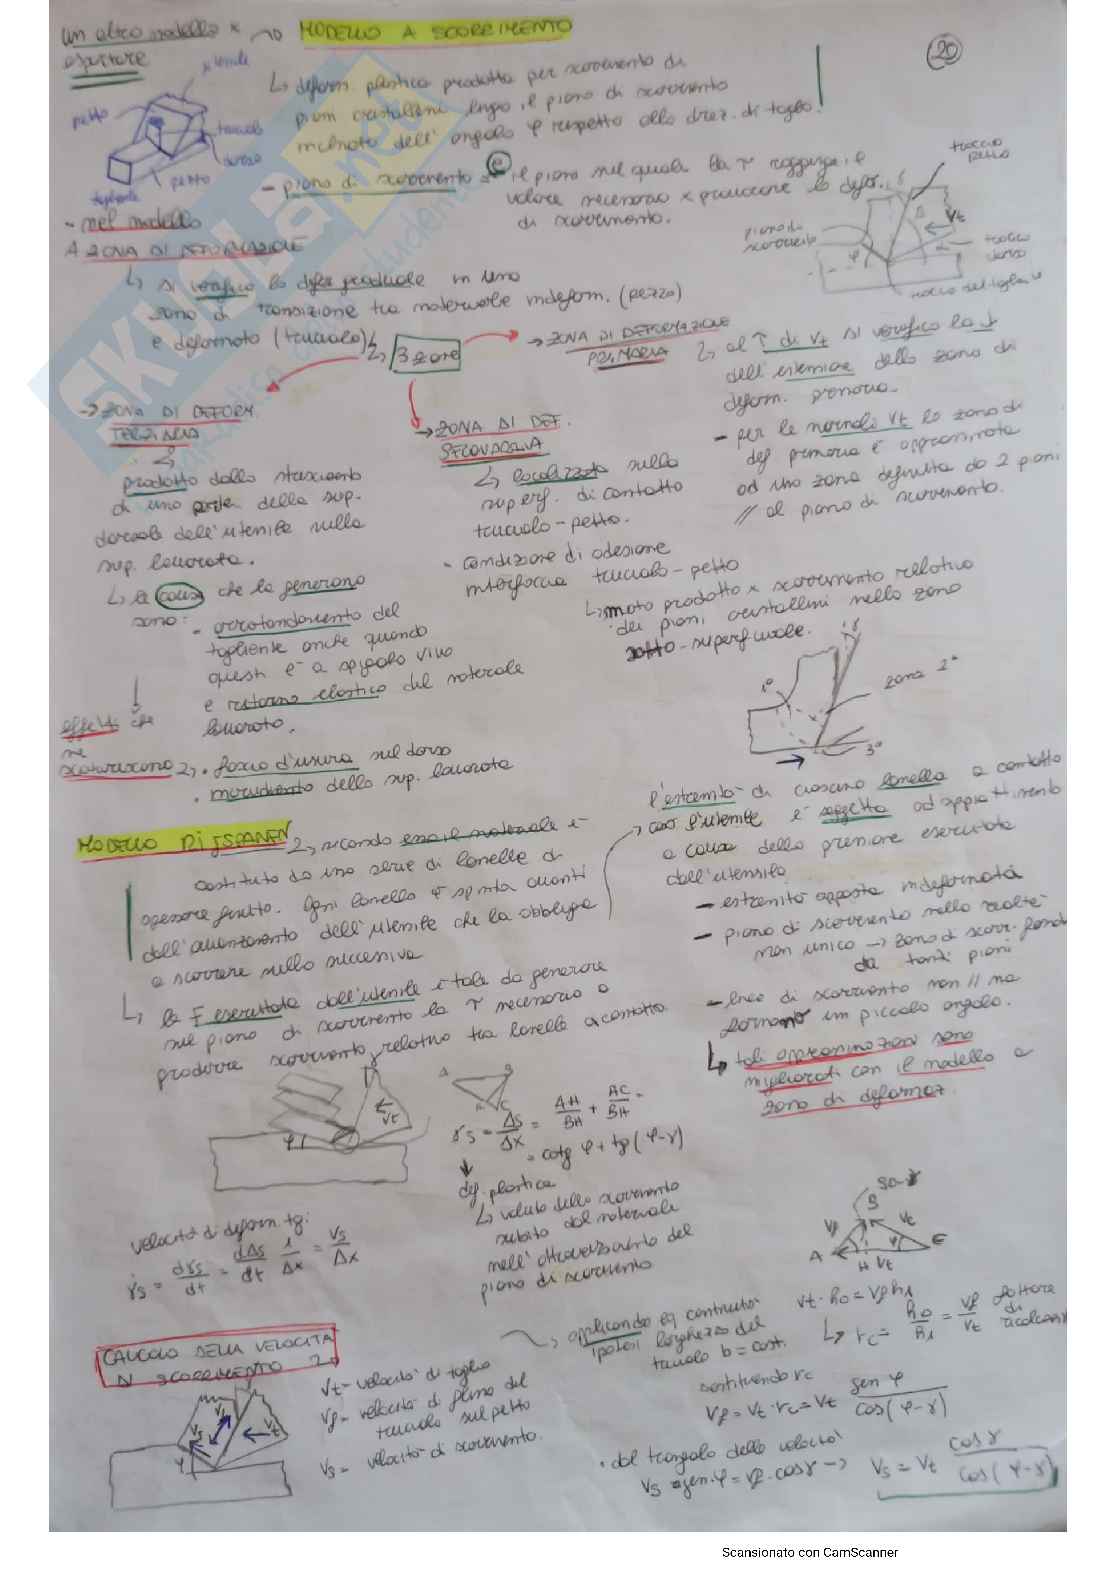 un altro modello x → MODELLO A SCORRIMENTO
asportare
20
↳ deform. plastica prodotta per scorrimento di
piani cristallini lungo il piano di scorrimento
inclinato dell'angolo φ rispetto alla direz. di taglio.
utensile
petto
truciolo
dorso
pezzo
tagliente
- piano di scorrimento è il piano nel quale la τ raggiunge il
valore necessario x provocare la defor.
di scorrimento.
traccia
petto
γ
Vt
piano di
scorrimento
φ
α
traccia
dorso
- nel modello
A ZONA DI DEFORMAZIONE
↳ si verifica la defor graduale in una
zona di transizione tra materiale indeform. (pezzo)
e deformato (truciolo)
↳ 3 zone
→ ZONA DI DEFORMAZIONE
PRIMARIA
↳ al ↑ di Vt si verifica la ↓
dell'estensione della zona di
deform. primaria.
- per le normali Vt la zona di
def primaria è approssimata
ad una zona definita da 2 piani
// al piano di scorrimento.
→ ZONA DI DEFORM.
TERZIARIA
↳
prodotta dallo strisciamento
di una parte della sup.
dorsale dell'utensile sulla
sup. lavorata.
↳ le cause che la generano
sono:
- arrotondamento del
tagliente anche quando
questi è a spigolo vivo
e ritorno elastico del materiale
lavorato.
effetti che
ne
scaturiscono
↳ • fascia d'usura sul dorso
• incrudimento della sup. lavorata
→ ZONA DI DEF.
SECONDARIA
↳ localizzata sulla
superf. di contatto
truciolo-petto.
- condizione di adesione
interfaccia truciolo-petto
↳ moto prodotto x scorrimento relativo
dei piani cristallini nella zona
sotto-superficiale.
γ
1°
zona 2°
3°
MODELLO DI
↳ secondo essa il materiale è
costituito da una serie di lamelle di
spessore finito. Ogni lamella è spinta avanti
dall'avanzamento dell'utensile che la obbliga
a scorrere sulla successiva
↳ la F esercitata dall'utensile è tale da generare
sul piano di scorrimento la τ necessaria a
produrre scorrimento relativo tra lamelle a contatto
l'estremità di ciascuna lamella a contatto
con l'utensile è soggetta ad appiattimento
a causa della pressione esercitata
dall'utensile
- estremità opposta indeformata
- piano di scorrimento nella realtà
non unico → zona di scorr. formata
da tanti piani
- linee di scorrimento non // ma
formano un piccolo angolo.
↳ tali approssimazioni sono
migliorati con il modello a
zona di deformaz.
φ
Vt
A B
H C
γs = Δs/Δx = AH/BH + AC/BH =
= cotg φ + tg(φ-γ)
def. plastica
↳ valuta dello scorrimento
subito dal materiale
nell'attraversamento del
piano di scorrimento
velocità di deform. tg:
γ̇s = dγs/dt = dΔs/dt 1/Δx = Vs/Δx
90-γ
B
Vf Vt
A φ
H Vt
CALCOLO DELLA VELOCITÀ
DI SCORRIMENTO
Vf
Vs Vt
φ
Vt = velocità di taglio
Vf = velocità di flusso del
truciolo sul petto
Vs = velocità di scorrimento.
↳ applicando eq continuità
ipotesi larghezza del
truciolo b = cost.
Vt · h0 = Vf h1
↳ rc = h0/h1 = Vf/Vt fattore
di
ricalcam
sostituendo rc
Vf = Vt · rc = Vt sen φ / cos(φ-γ)
• dal triangolo delle velocità
Vs = Vt cosγ / cos(φ-γ)
Scansionato con CamScanner